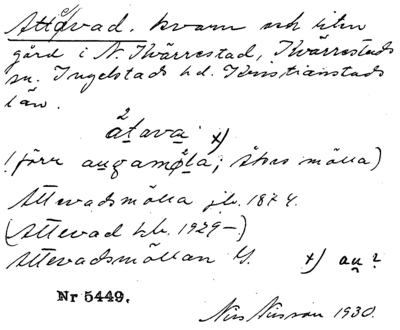 Attavad. kvarn och liten
gård i N. Kvärrestad, Kvärrestads
sn. Ingelstads hd. Kristianstads
län.
²åtava x)
(förr augamøla; stora mölla)
Attevadsmölla jb. 1874.
(Attevad hb. 1929-)
Attevadsmöllan G. x) au?
Nr 5449.
Nils Nilsson 1930.